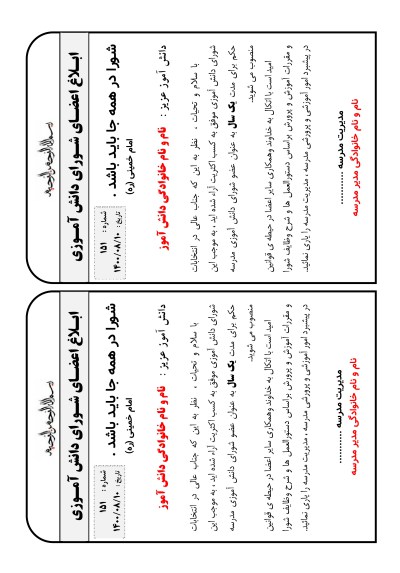 بسم الله الرحمن الرحیم
ابـلاغ اعضـای شـورای دانش آمـوزی
شورا در همه جا باید باشد .
امام خمینی (ره)
شماره : ۱۵۱
تاریخ : ۱۴۰۰/۰۸/۱۰
دانش آموز عزیز : نام و نام خانوادگی دانش آموز
با سلام و تحیات ، نظر به این که جناب عالی در انتخابات
شورای دانش آموزی موفق به کسب اکثریت آراء شده اید ، به موجب این
حکم برای مدت یک سال به عنوان عضو شورای دانش آموزی مدرسه
منصوب می شوید.
امید است با اتکال به خداوند وهمکاری سایر اعضا در حیطه ی قوانین
و مقررات آموزش و پرورش براساس دستورالعمل ها و شرح وظایف شورا
در پیشبرد امور آموزشی و پرورشی مدرسه ، مدیریت مدرسه را یاری نمائید.
مدیریت مدرسه ............
نام و نام خانوادگی مدیر مدرسه
بسم الله الرحمن الرحیم
ابـلاغ اعضـای شـورای دانش آمـوزی
شورا در همه جا باید باشد .
امام خمینی (ره)
شماره : ۱۵۱
تاریخ : ۱۴۰۰/۰۸/۱۰
دانش آموز عزیز : نام و نام خانوادگی دانش آموز
با سلام و تحیات ، نظر به این که جناب عالی در انتخابات
شورای دانش آموزی موفق به کسب اکثریت آراء شده اید ، به موجب این
حکم برای مدت یک سال به عنوان عضو شورای دانش آموزی مدرسه
منصوب می شوید.
امید است با اتکال به خداوند وهمکاری سایر اعضا در حیطه ی قوانین
و مقررات آموزش و پرورش براساس دستورالعمل ها و شرح وظایف شورا
در پیشبرد امور آموزشی و پرورشی مدرسه ، مدیریت مدرسه را یاری نمائید.
مدیریت مدرسه ............
نام و نام خانوادگی مدیر مدرسه